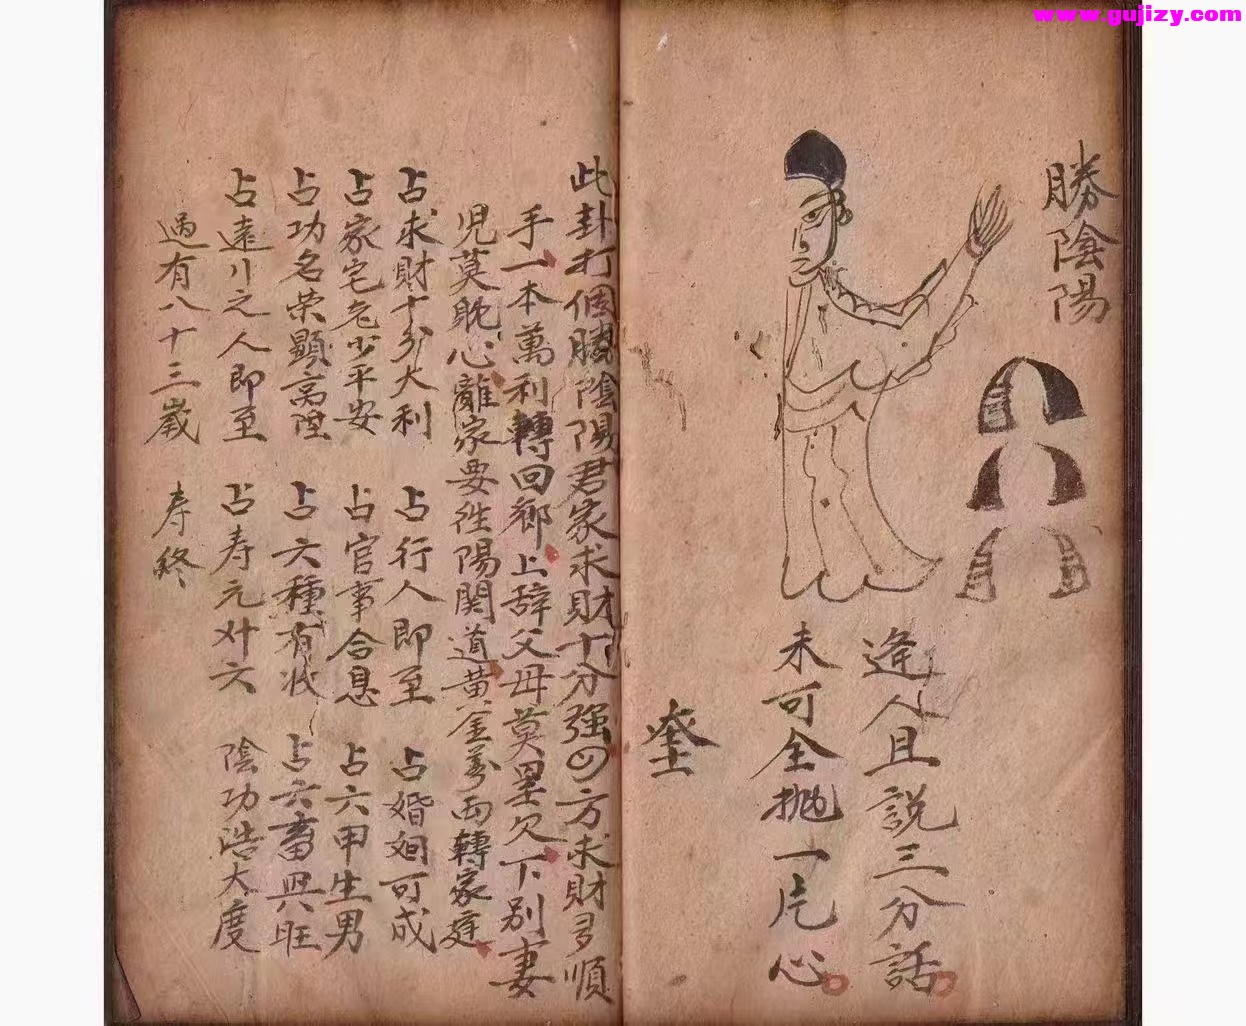 www.gujizy.com
勝陰陽
逢人且説三分話
未可全抛一片心
此卦打個勝陰陽君家求財十分强四方求財多順
手一本萬利轉回鄉上辞父母莫星欠下别妻
児莫躭心離家要往陽関道黄金萬両轉家庭
占求財十分大利 占行人即至 占婚姻可成
占家宅老少平安 占官事合息 占六甲生男
占功名荣顯高陞 占六種有收 占六畜興旺
占遠行之人即至 占寿元对六 陰功浩大度
過有八十三歲 寿終